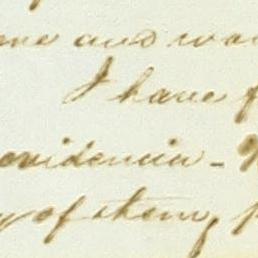 me and wa
I have f
ovidencia -
y of them, p